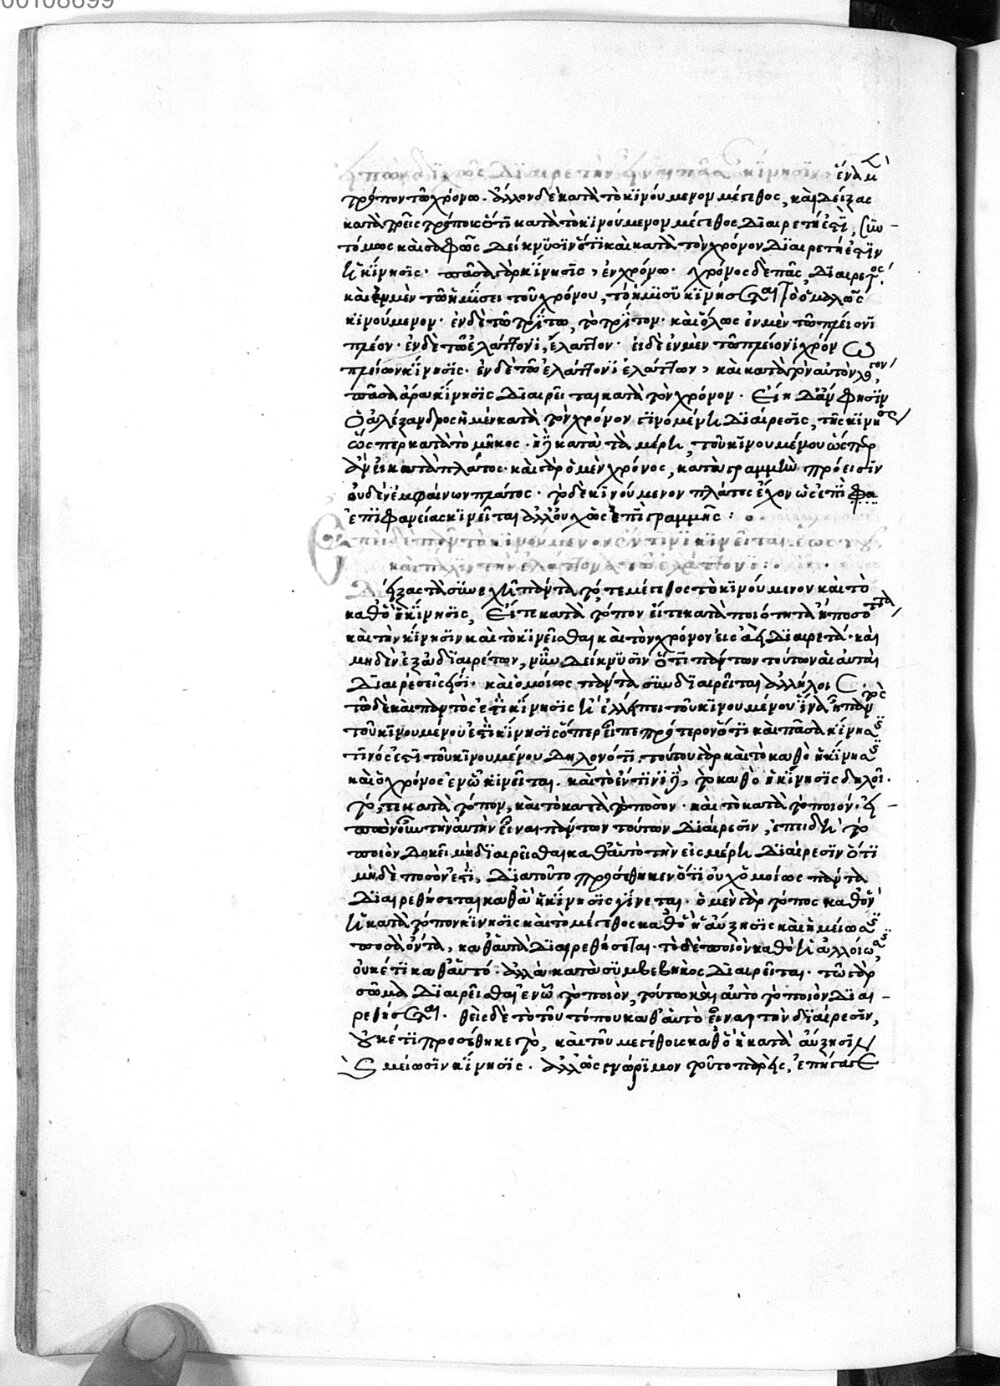 00108699
εἰπὼν διχῶς διαιρετὴν εἶναι πᾶσαν κίνησιν. ἕνα μ
τρόπον τῷ χρόνῳ. ἄλλον δὲ κατὰ τὸ κινούμενον μέγεθος, καὶ δείξας
κατὰ τρεῖς τρόπους ὅτι κατὰ τὸ κινούμενον μέγεθος διαιρετή ἐστι, συν
τόμως καὶ σαφῶς δείκνυσιν ὅτι καὶ κατὰ τὸν χρόνον διαιρετή ἐστιν
ἡ κίνησις. πᾶσα γὰρ κίνησις, ἐν χρόνῳ. χρόνος δὲ πᾶς, διαιρετός.
καὶ ἐν μὲν τῷ ἡμίσει τοῦ χρόνου, τὸ ἥμισυ κινήσεται τὸ ὁμαλῶς
κινούμενον. ἐν δὲ τῷ τρίτῳ, τὸ τρίτον. καὶ ὅλως ἐν μὲν τῷ πλείονι
πλέον. ἐν δὲ τῷ ἐλάττονι, ἔλαττον. εἰ δὲ ἐν μὲν τῷ πλείονι χρόνῳ
πλείων κίνησις. ἐν δὲ τῷ ἐλάττονι ἐλάττων, καὶ κατὰ τὸν αὐτὸν λόγον,
πᾶσα ἄρα κίνησις διαιρεῖται κατὰ τὸν χρόνον. εἴη δ' ἄν φησιν
ὁ ἀλέξανδρος ἡ μὲν κατὰ τὸν χρόνον γινομένη διαίρεσις, τῆς κινήσεως
ὥσπερ κατὰ τὸ μῆκος. ἡ κατὰ τὰ μέρη, τοῦ κινουμένου ὥσπερ
ἂν εἰ κατὰ πλάτος. καὶ γὰρ ὁ μὲν χρόνος, κατὰ γραμμὴν πρόεισιν
οὐδὲν ἐμφαίνων πλάτος. τὸ δὲ κινούμενον πλάτος ἔχον ὡς ἐπὶ φα
ἐπιφανείας κινεῖται ἀλλ' οὐχ ὡς ἐπὶ γραμμῆς:
Ἐπεὶ δὲ πᾶν τὸ κινούμενον ἔν τινι κινεῖται. ἕως τοῦ,
καὶ πάλιν τὴν ἐλάττονα τῷ ἐλάττονι:
Δείξας τὰ συνεχῆ πάντα, τό τε μέγεθος τὸ κινούμενον καὶ τὸ
καθὸ ἡ κίνησις, εἴτε κατὰ τόπον εἴτε κατὰ ποιότητα ἢ ποσότητα,
καὶ τὴν κίνησιν καὶ τὸ κινεῖσθαι καὶ τὸν χρόνον εἰς ἀεὶ διαιρετά. καὶ
μηδὲν ἐξ ἀδιαιρέτων, νῦν δείκνυσιν ὅτι πάντων τούτων αἱ αὐταὶ
διαιρέσεις εἰσί. καὶ ὁμοίως πάντα συνδιαιρεῖται ἀλλήλοις. πρὸς
τῷ δὲ καὶ παντὸς ἐστι κίνησις ἢ ἐλλείπει τοῦ κινουμένου ἵνα ᾖ παντὸς
τοῦ κινουμένου ἐστὶ κίνησις ὅπερ εἶπε πρότερον ὅτι καὶ πᾶσα κίνησις
τινός ἐστι τοῦ κινουμένου δηλονότι. τούτου γὰρ καὶ τὸ καθὸ ἡ κίνησις
καὶ ὁ χρόνος ἐν ᾧ κινεῖται. καὶ τὸ ἔν τινι ᾖ, τὸ καθὸ ἡ κίνησις δηλοῖ.
τό, τε κατὰ τόπον, καὶ τὸ κατὰ τὸ ποσόν. καὶ τὸ κατὰ τὸ ποιόν. εἰ
πὼν οὖν τὴν αὐτὴν εἶναι πάντων τούτων διαίρεσιν, ἐπειδὴ τὸ
ποιὸν δοκεῖ μὴ διαιρεῖσθαι καθ' αὑτὸ τὴν εἰς μέρη διαίρεσιν ὅτι
μηδὲ ποσόν ἐστι, διὰ τοῦτο προσέθηκεν ὅτι οὐχ ὁμοίως πάντα
διαιρεθήσεται καθ' ἃ ἡ κίνησις γίνεται. ὁ μὲν γὰρ τόπος καθ' ὃν
ἡ κατὰ τόπον κίνησις καὶ τὸ μέγεθος καθὸ ἡ αὔξησις καὶ ἡ μείωσις
ποσὰ ὄντα, καθ' αὑτὰ διαιρεθήσεται. τὸ δὲ ποιὸν καθὸ ἡ ἀλλοίωσις,
οὐκέτι καθ' αὑτό. ἀλλὰ κατὰ συμβεβηκὸς διαιρεῖται. τῷ γὰρ
σῶμα διαιρεῖσθαι ἐν ᾧ τὸ ποιόν, τούτῳ καὶ αὐτὸ τὸ ποιὸν διαι
ρεθήσεται. θεὶς δὲ τὸ τοῦ τόπου καθ' αὑτὸ εἶναι τὴν διαίρεσιν,
οὐκέτι προσέθηκε τό, καὶ τοῦ μεγέθους καθὸ ἡ κατὰ αὔξησιν
ἢ μείωσιν κίνησις. ἀλλ' ὡς γνώριμον τοῦτο παρῆκε, ἐπήγαγε